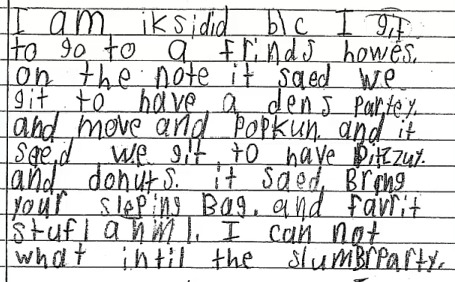 I am iksidid b/c I git
to go to a frinds howes.
on the note it saed we
git to have a dens partey.
and move and popkun. and it
saed we git to have pitzzuy.
and donuts. it saed Bring
your sleping Bag. and favrit
stuf l anml. I can not
what intil the slumBrParty.